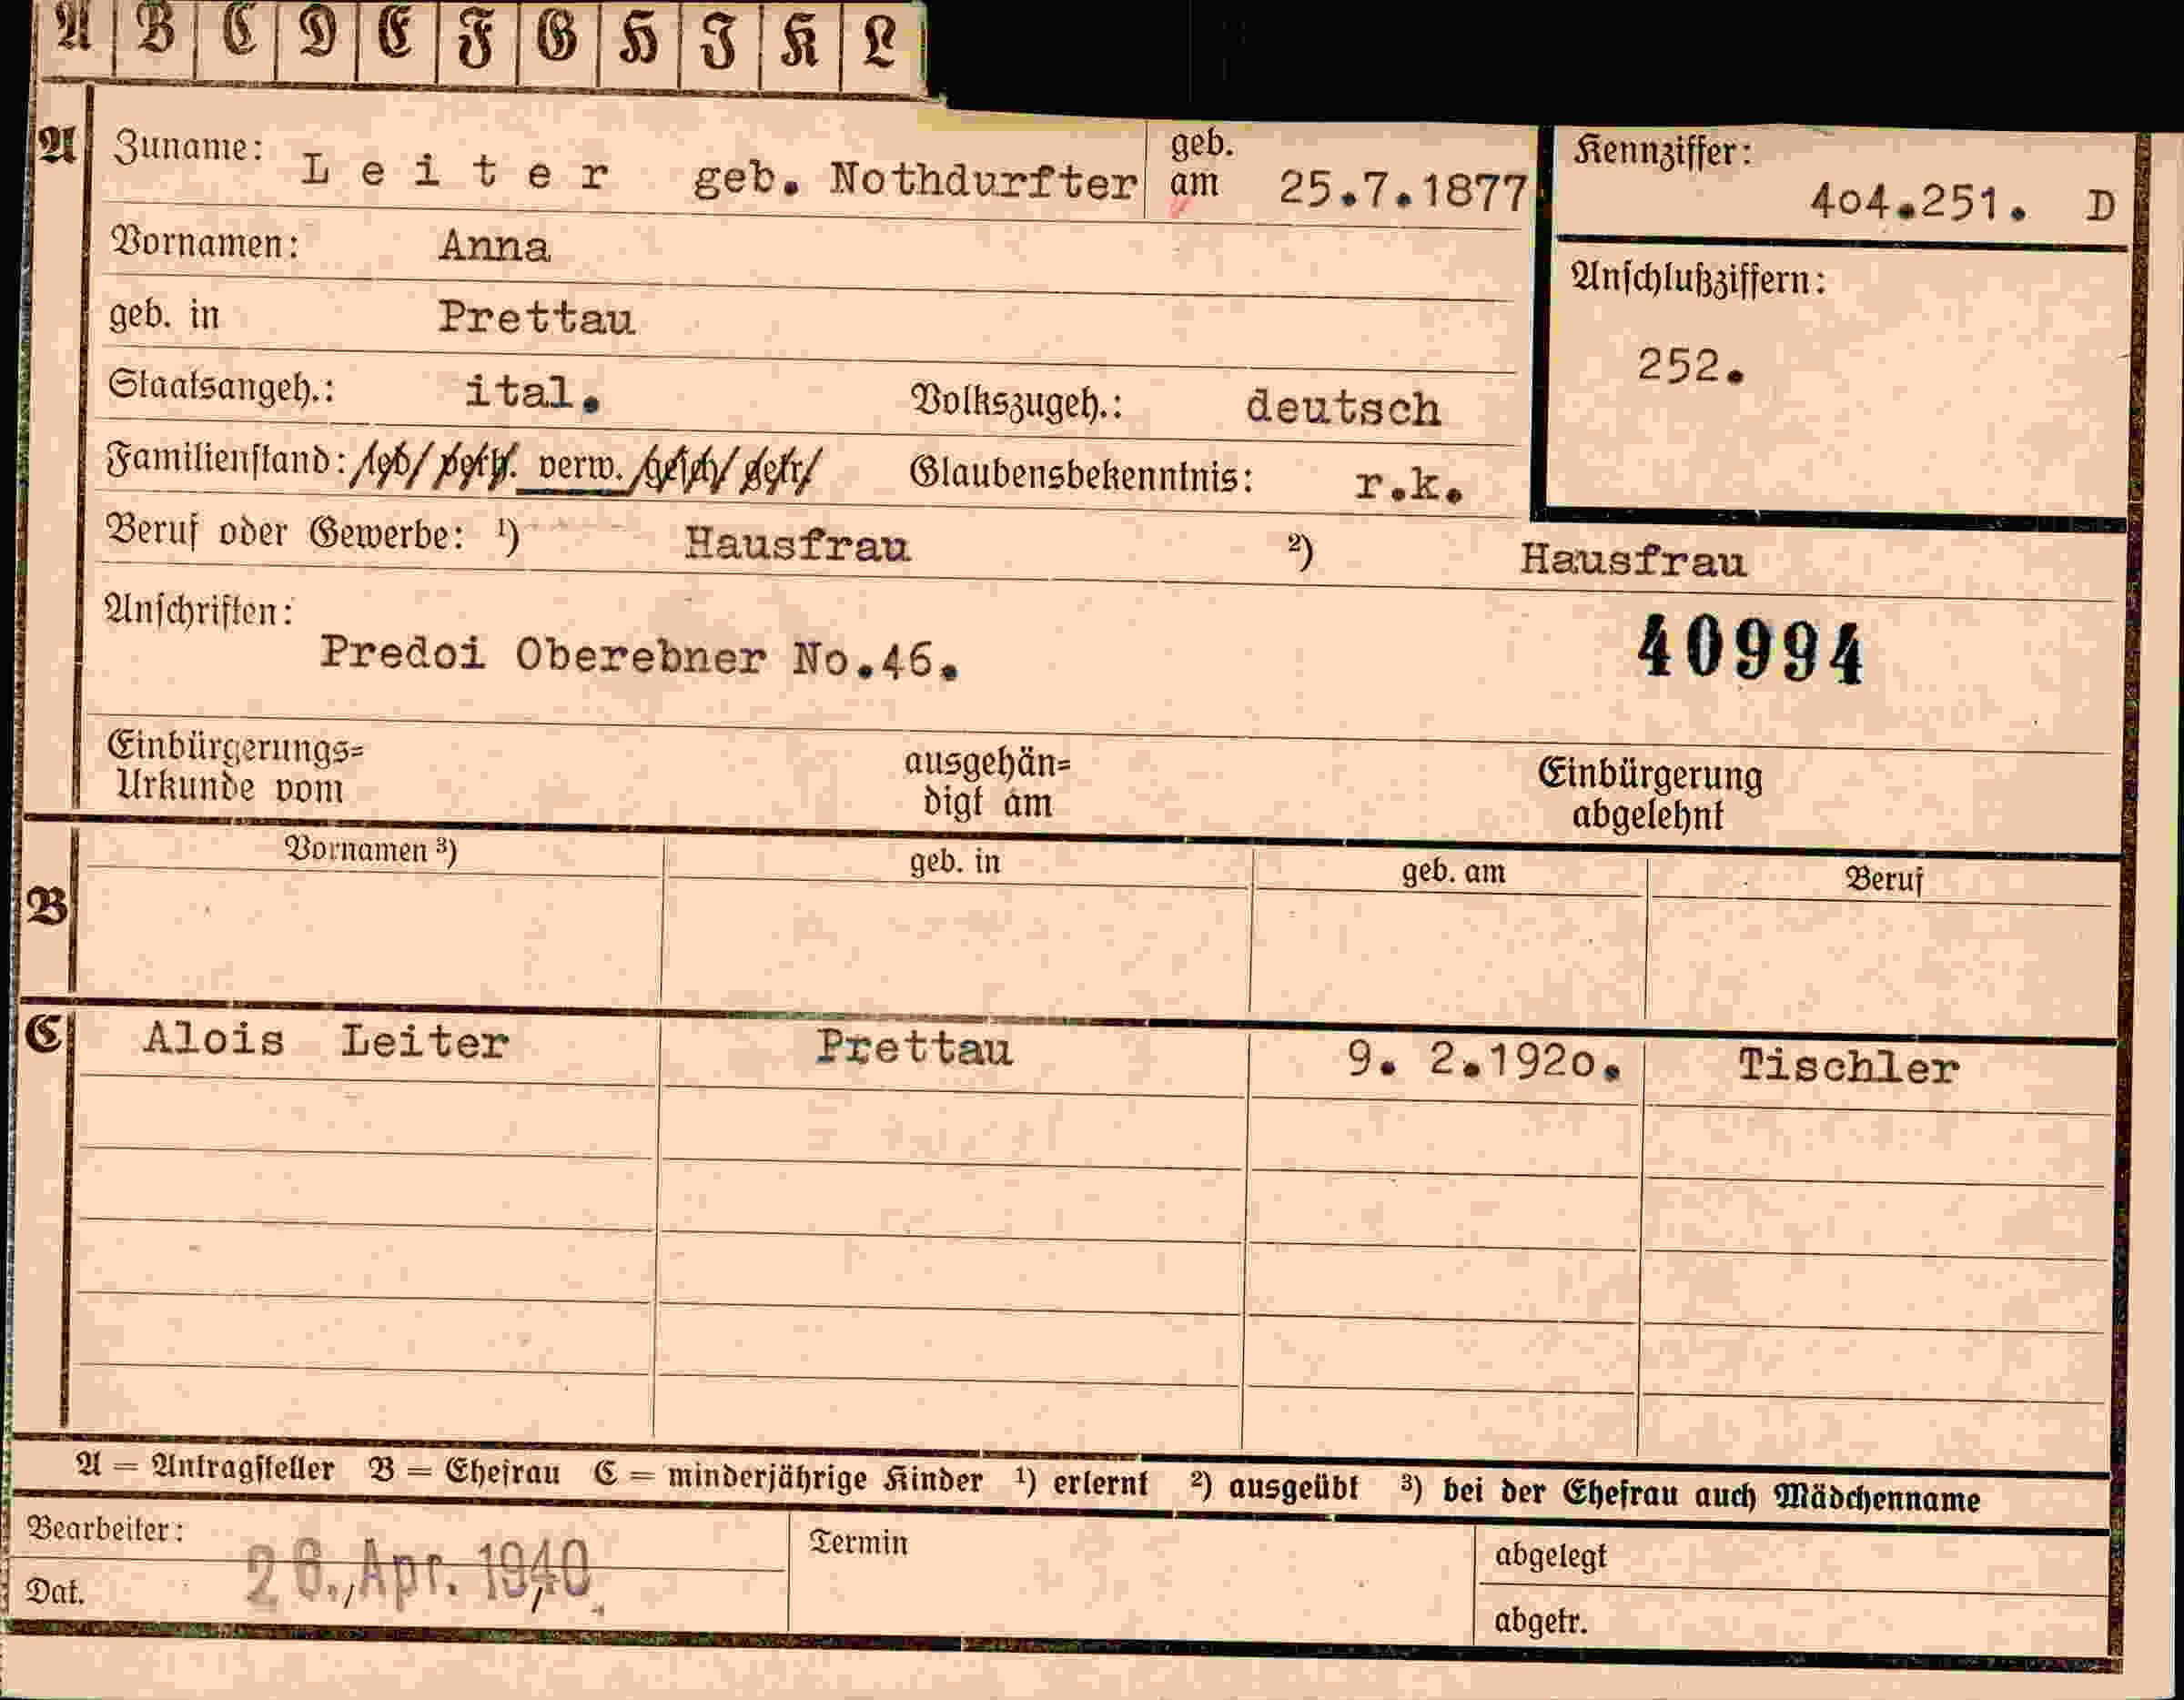 A B C D E F G H I K L
A Zuname: Leiter geb. Nothdurfter geb. am 25.7.1877 Kennziffer: 404.251. D
Vornamen: Anna
Anschlußziffern:
geb. in Prettau
252.
Staatsangeh.: ital. Volkszugeh.: deutsch
Familienstand: led. verh. verw. gesch. getr. Glaubensbekenntnis: r.k.
Beruf oder Gewerbe: ¹) Hausfrau ²) Hausfrau
Anschriften:
Predoi Oberebner No.46. 40994
Einbürgerungs= ausgehän= Einbürgerung
Urkunde vom digt am abgelehnt
Vornamen ³) geb. in geb. am Beruf
B
C Alois Leiter Prettau 9. 2.1920. Tischler
A = Antragsteller B = Ehefrau C = minderjährige Kinder ¹) erlernt ²) ausgeübt ³) bei der Ehefrau auch Mädchenname
Bearbeiter: Termin abgelegt
Dat. 26. Apr. 1940 abgetr.